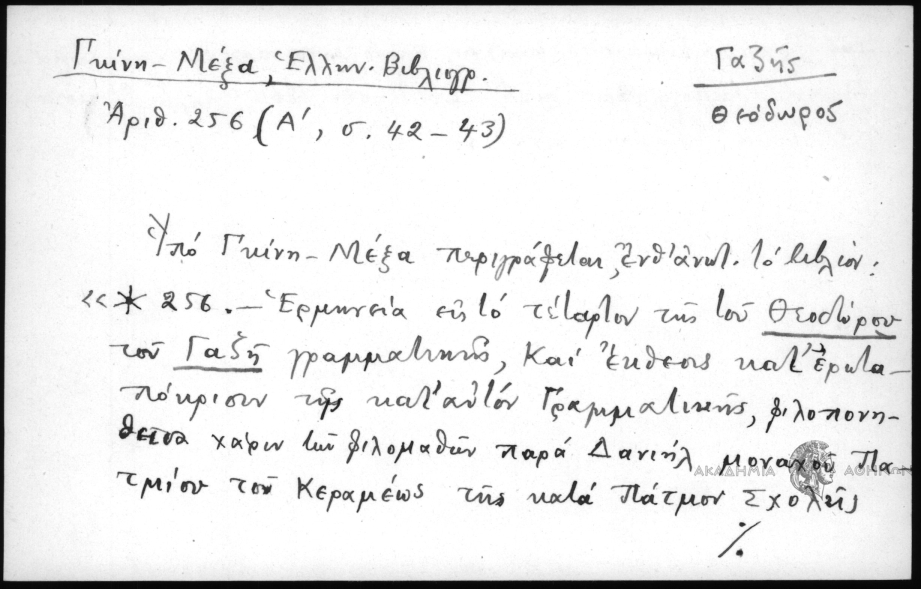 Γκίνη - Μέξα, Ἑλλην. Βιβλιογρ.
Γαζῆς
Ἀριθ. 256 (Α', σ. 42 - 43)
Θεόδωρος
Ὑπό Γκίνη - Μέξα περιγράφεται, ἔνθ' ἀνωτ. τό βιβλίον:
«* 256. — Ἑρμηνεία εἰς τό τέταρτον τῆς τοῦ Θεοδώρου
τοῦ Γαζῆ γραμματικῆς, καί ἔκθεσις κατ' ἐρωτα-
πόκρισιν τῆς κατ' αὐτόν Γραμματικῆς, φιλοπονη-
θεῖσα χάριν τῶν φιλομαθῶν παρά Δανιήλ μοναχοῦ Πα-
τμίου τοῦ Κεραμέως τῆς κατά Πάτμον Σχολῆς
ΑΚΑΔΗΜΙΑ ΑΘΗΝΩΝ
./.